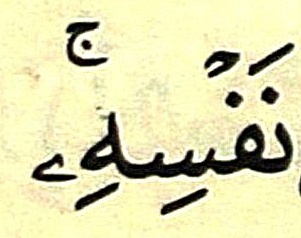 نَفْسِهِۦ ۚ